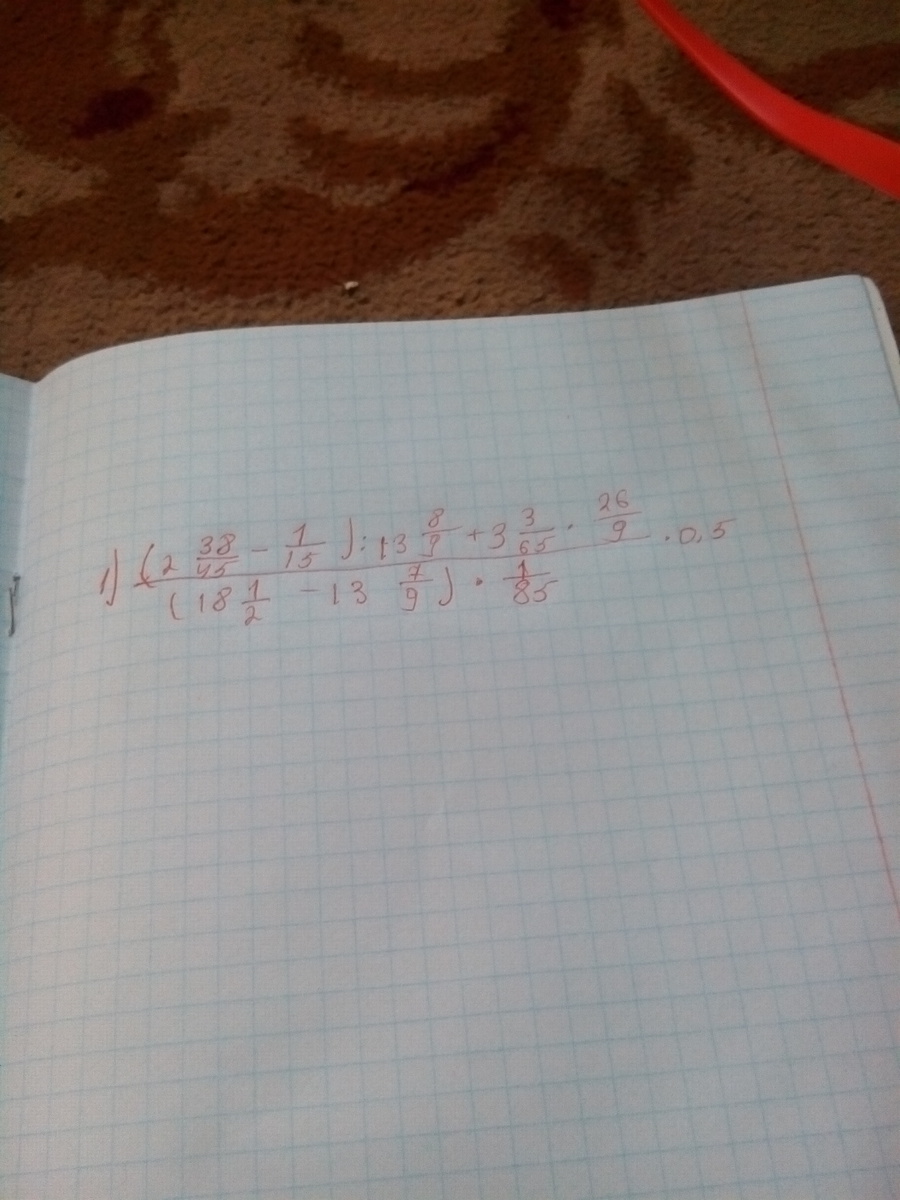 1) (2 38/45 - 1/15) : 13 8/9 + 3 3/65 · 26/9 · 0,5
(18 1/2 - 13 7/9) · 1/85